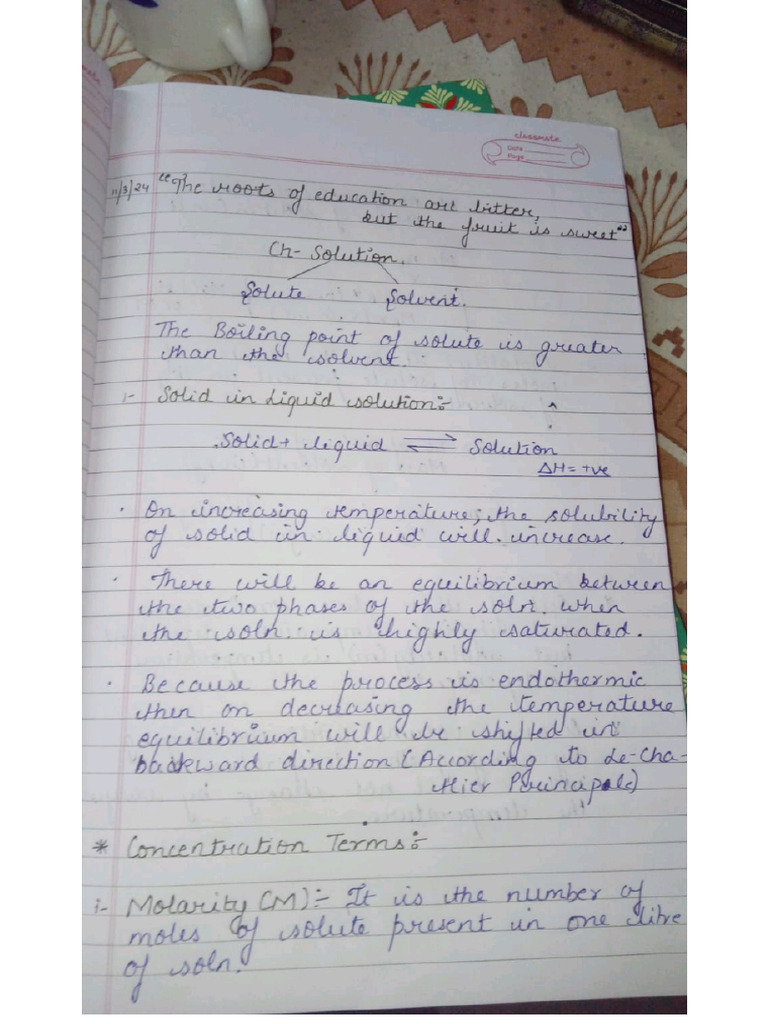 classmate
Date
Page
11/3/24 "The roots of education are bitter,
but the fruit is sweet"
Ch- Solution.
Solute Solvent.
The Boiling point of solute is greater
than the solvent.
i- Solid in Liquid solution:-
Solid + liquid ⇌ Solution
ΔH = +ve
• On increasing temperature, the solubility
of solid in liquid will increase.
• There will be an equilibrium between
the two phases of the soln. when
the soln is highly saturated.
• Because the process is endothermic
then on decreasing the temperature
equilibrium will be shifted in
backward direction (According to Le-Cha-
tlier Principle)
* Concentration Terms:-
i- Molarity (M):- It is the number of
moles of solute present in one litre
of soln.